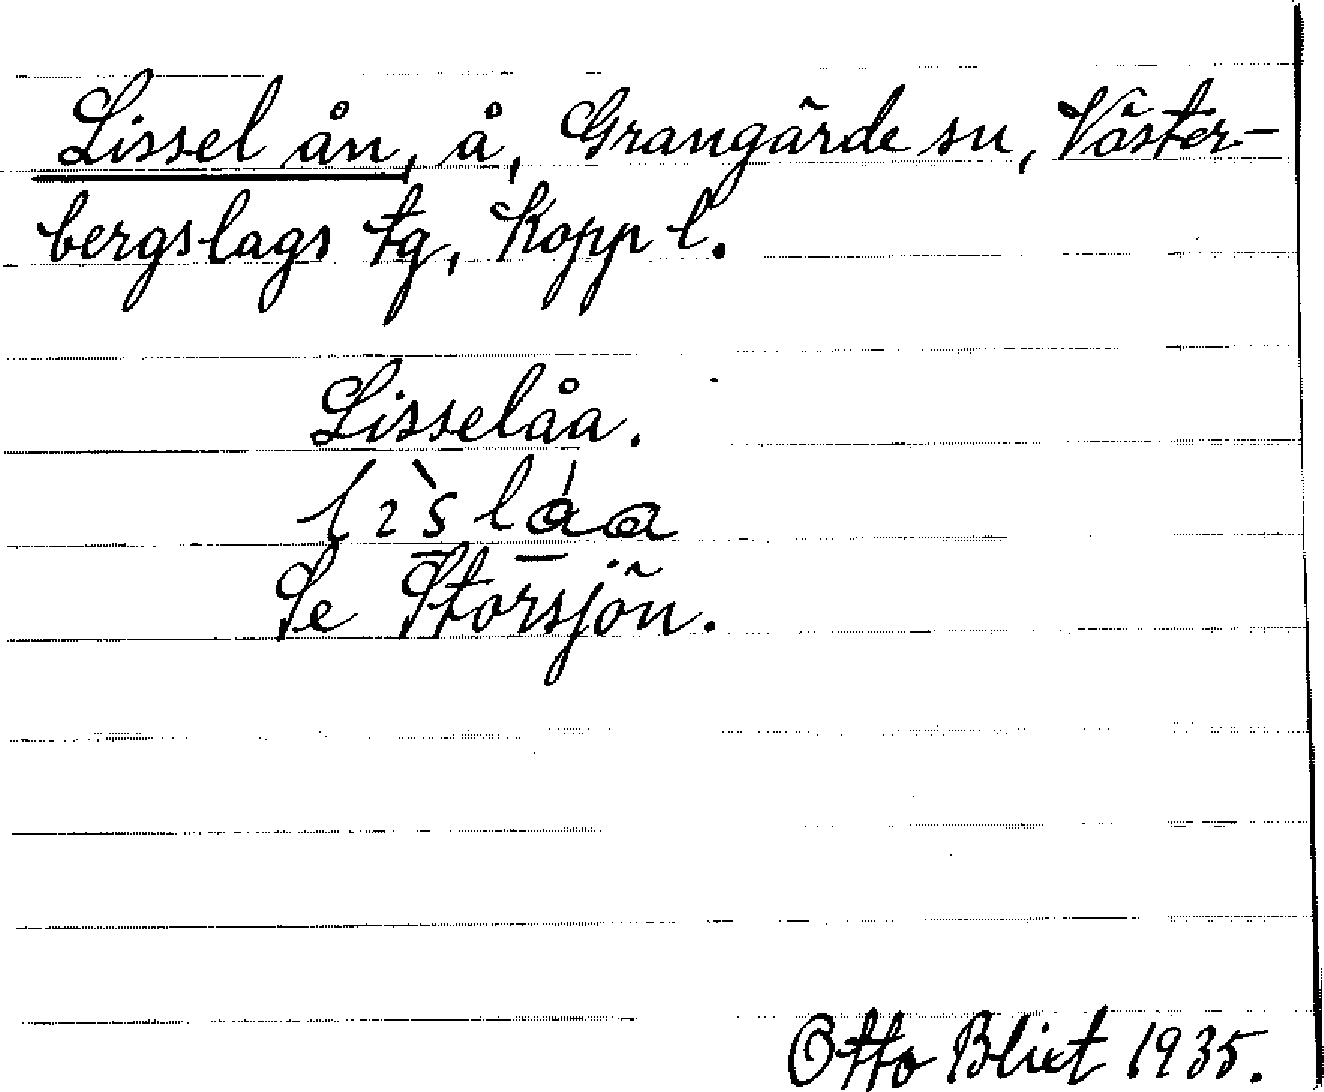 Lissel ån, å, Grangärde sn, Väster-
bergslags tg, Kopp l.
Lisselåa.
Se Storsjön.
Otto Blixt 1935.